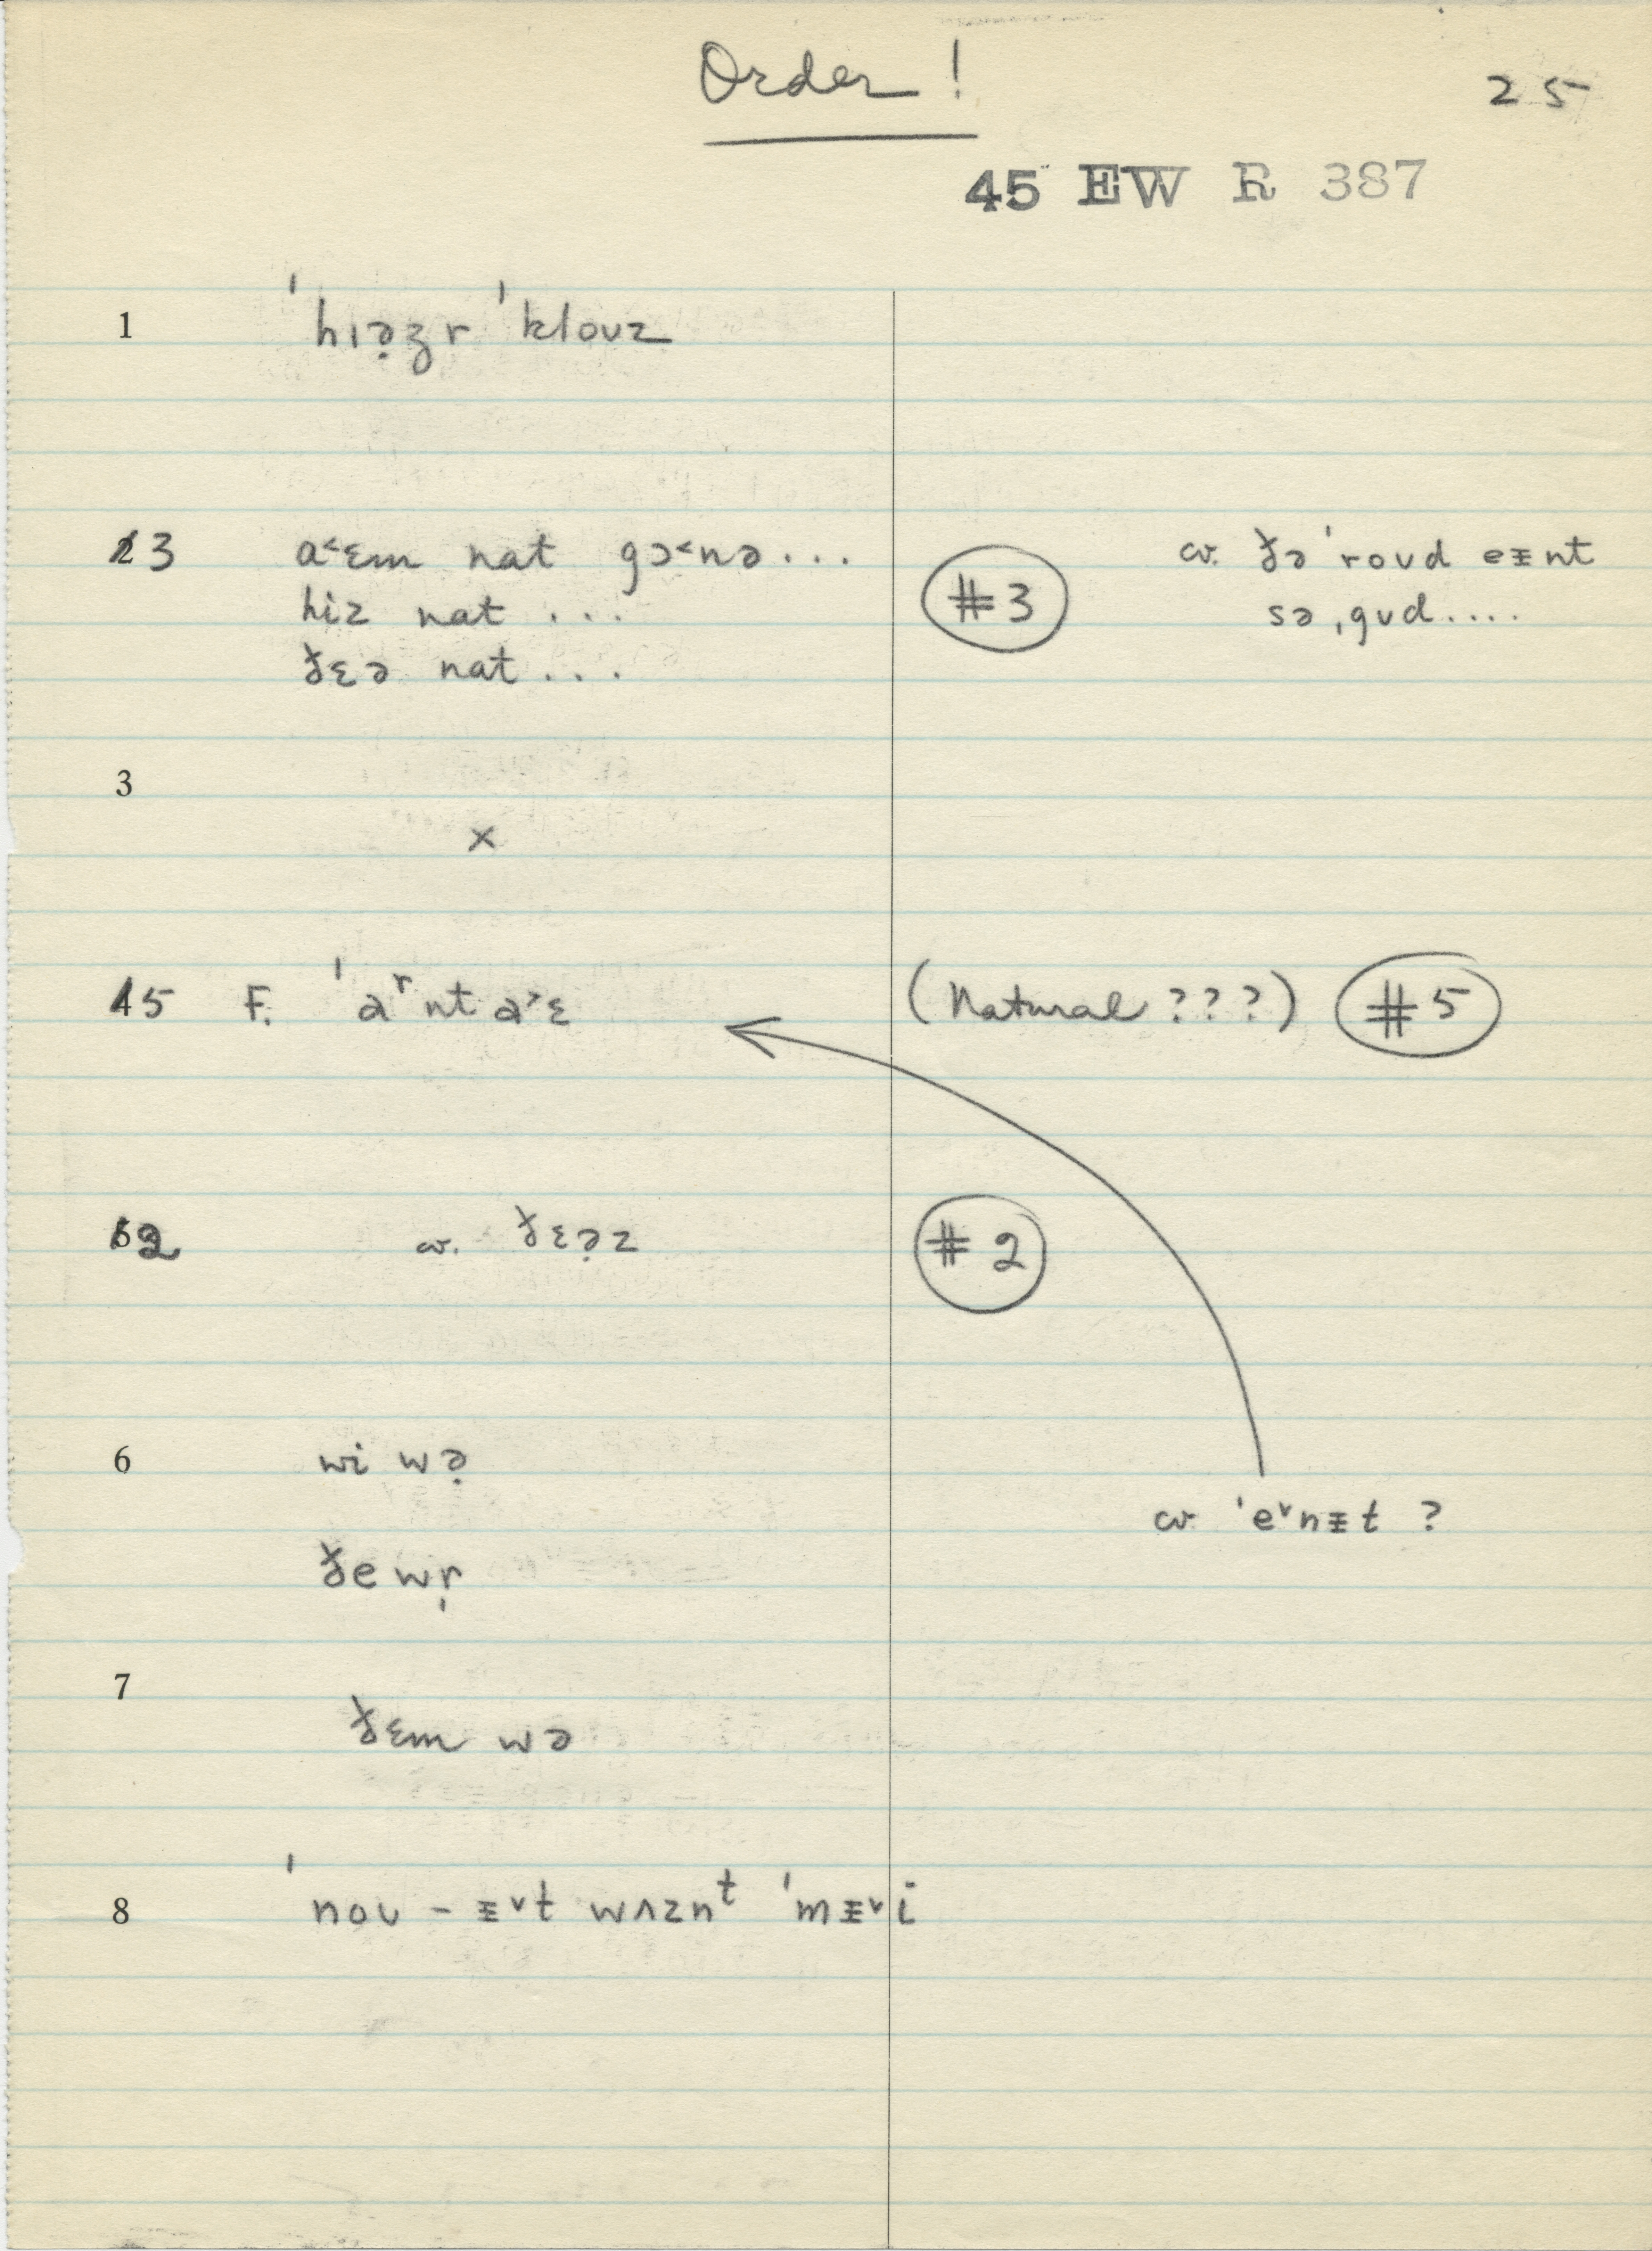 Order!
25
45 EW R 387
1 ˈhɪə̣ʒr ˈkloʊz
2 3 a˂ɛm nat gɔ˂nə...
hiz nat ...
ðɛə nat ...
#3
cv. ðə ˈroʊd eᵻnt
sə ˌgʊd....
3
x
4 5 F. ˈaʳnt a˃ɛ (Natural ???) #5
5 2 cv. ðɛə̣z #2
6 wi wə̣
cv. ˈe˅nᵻt ?
ðe wr̩
7 ðɛm wə
8 ˈnoʊ - ᵻ˅t wʌznᵗ ˈmᵻ˅i